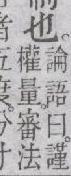 也。論語曰。謹
權量。審法
五度。分